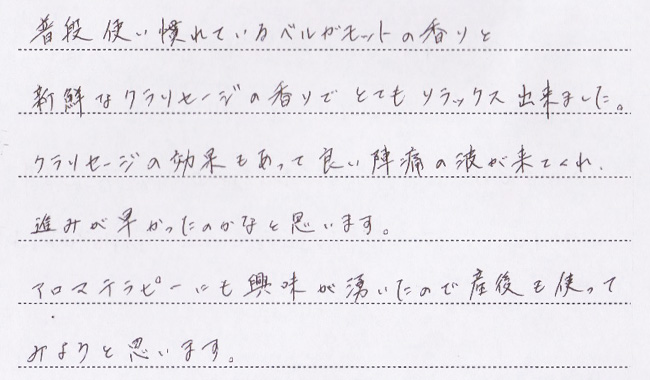 普段使い慣れているベルガモットの香りと
新鮮なクラリセージの香りでとてもリラックス出来ました。
クラリセージの効果もあって良い陣痛の波が来てくれ、
進みが早かったのかなと思います。
アロマテラピーにも興味が湧いたので産後も使って
みようと思います。